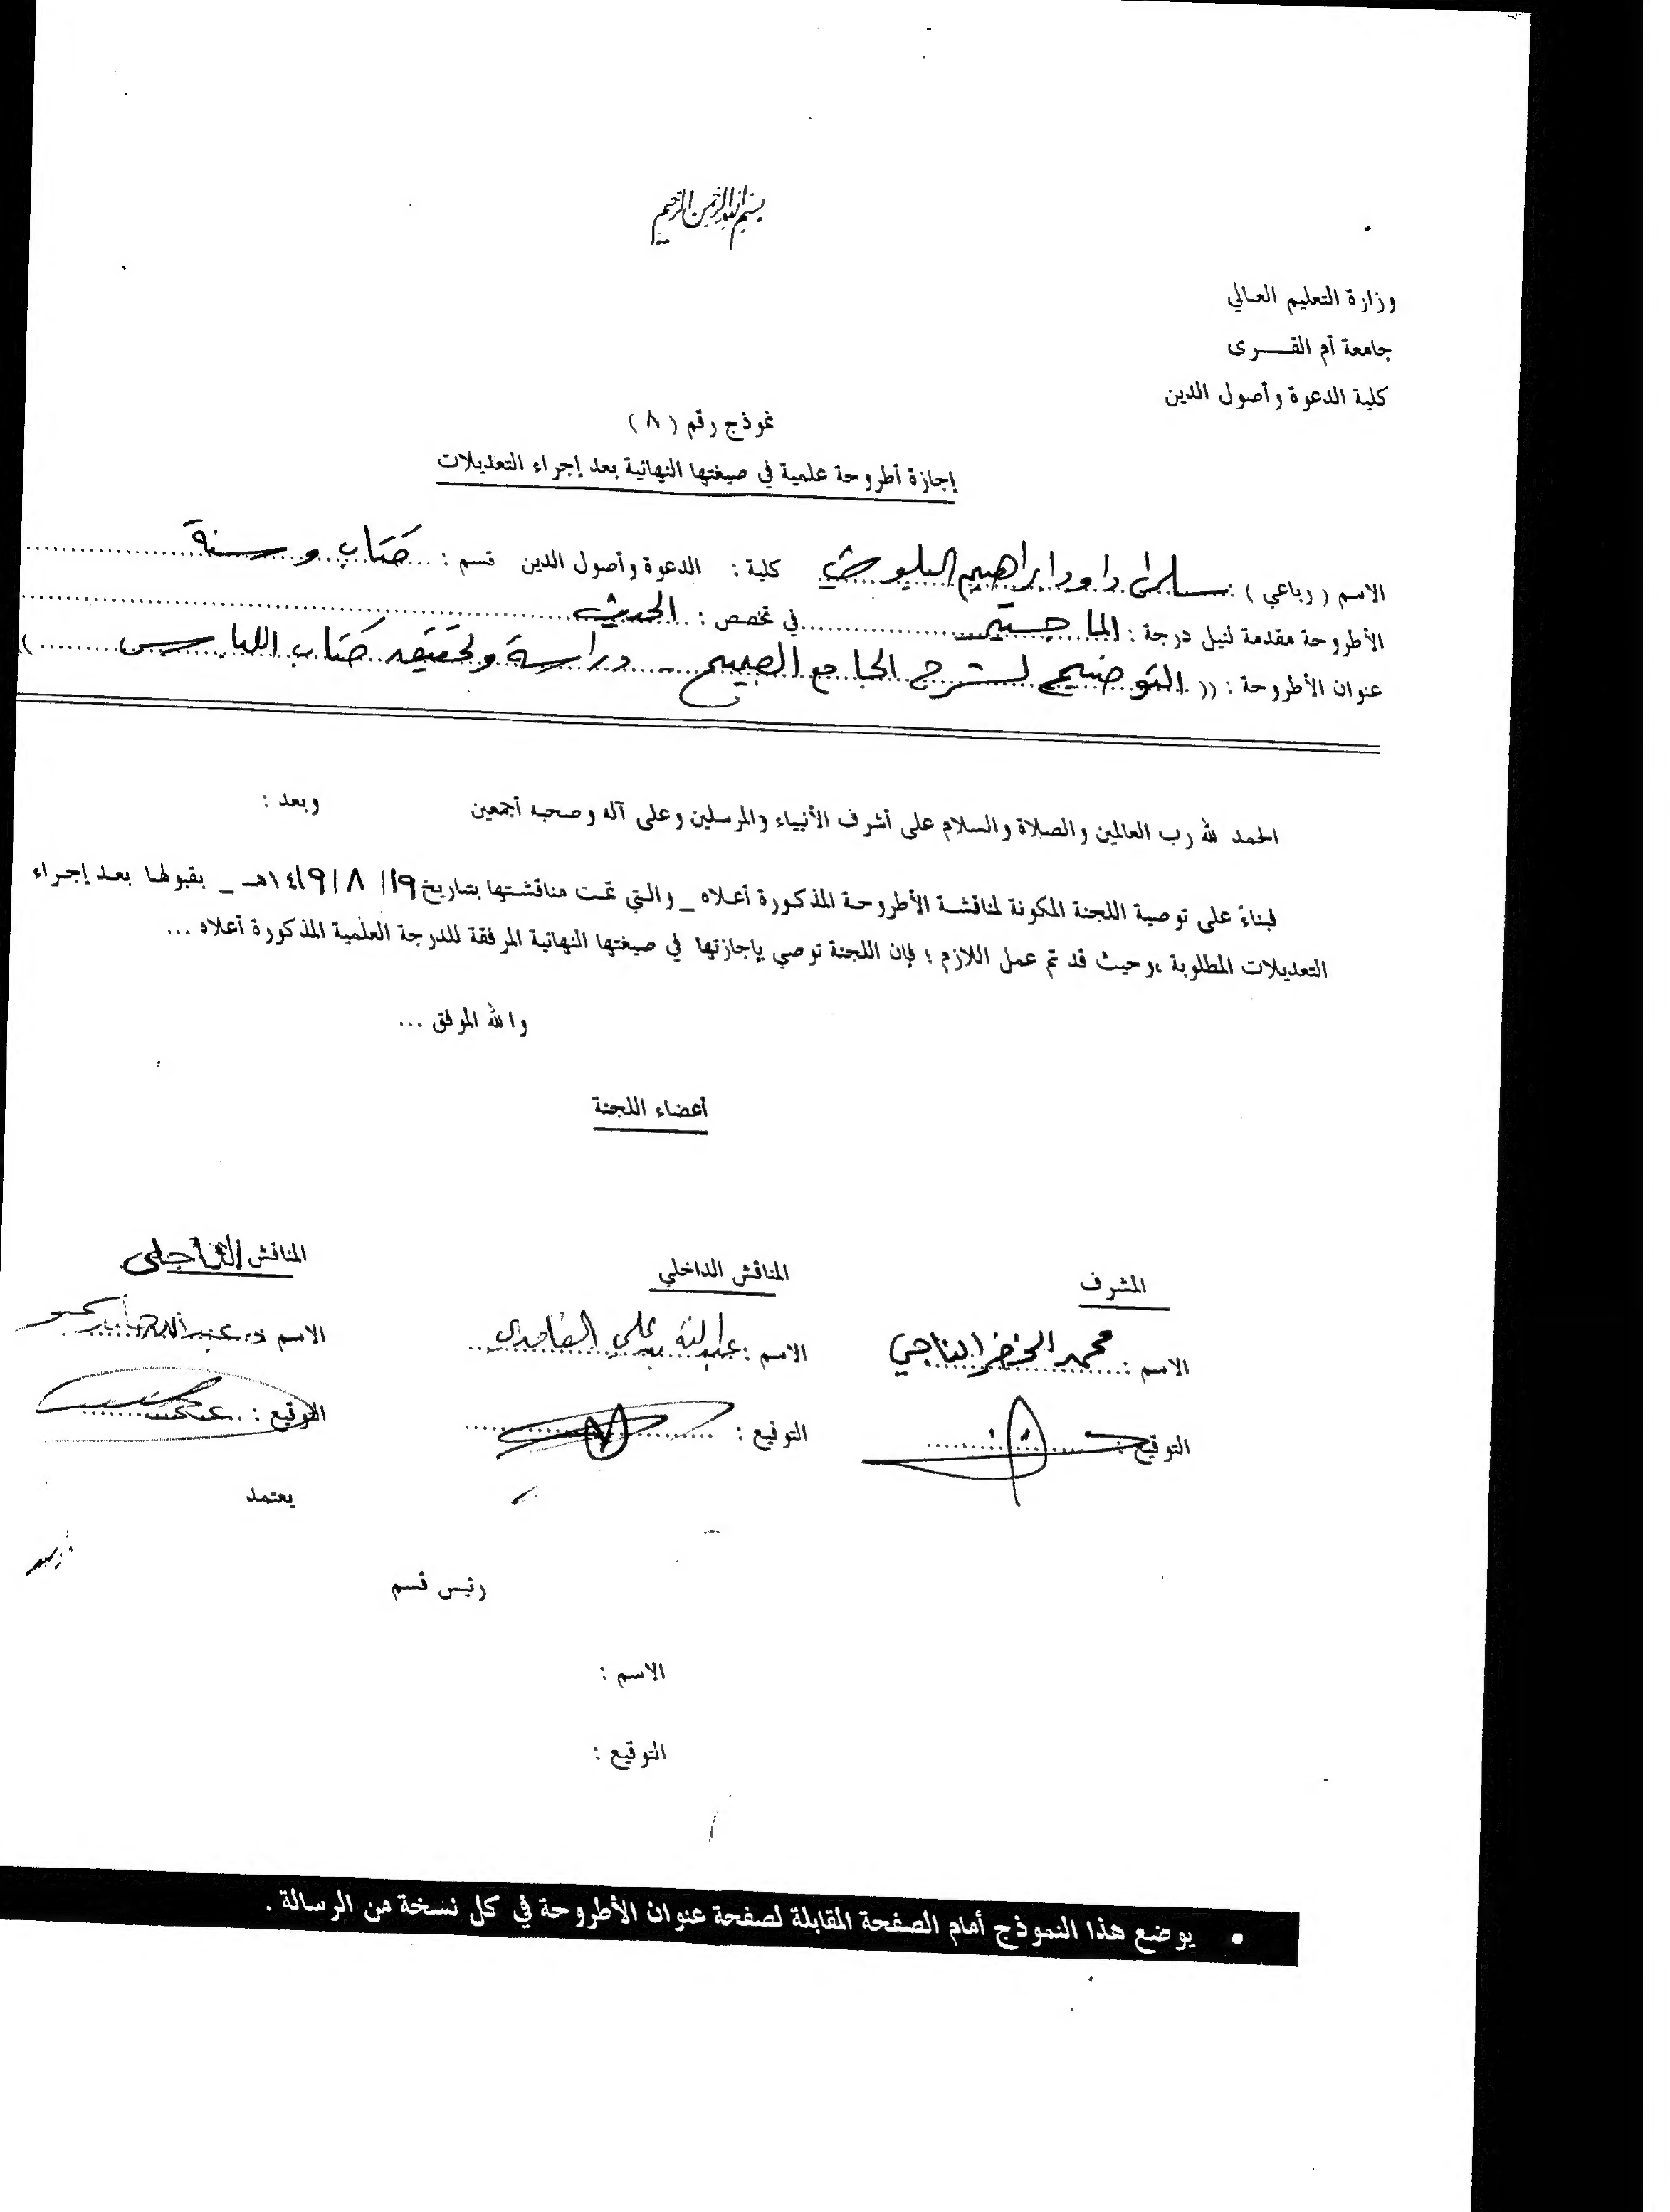 بسم الله الرحمن الرحيم
وزارة التعليم العالي
جامعة أم القـــرى
كلية الدعوة وأصول الدين
نموذج رقم ( ٨ )
إجازة أطروحة علمية في صيغتها النهائية بعد إجراء التعديلات
الاسم ( رباعي ) : سلمان داود إبراهيم البلوشي كلية : الدعوة وأصول الدين قسم : كتاب وسنة
الأطروحة مقدمة لنيل درجة : الماجستير في تخصص : الحديث
عنوان الأطروحة : (( التوضيح لشرح الجامع الصحيح - دراسة وتحقيق كتاب اللباس ))
الحمد لله رب العالمين والصلاة والسلام على أشرف الأنبياء والمرسلين وعلى آله وصحبه أجمعين وبعد :
فبناءً على توصية اللجنة المكونة لمناقشة الأطروحة المذكورة أعلاه _ والتي تمت مناقشتها بتاريخ ١٩/ ٨ / ١٤١٩هـ _ بقبولها بعد إجراء
التعديلات المطلوبة ،وحيث قد تم عمل اللازم ؛ فإن اللجنة توصي بإجازتها في صيغتها النهائية المرفقة للدرجة العلمية المذكورة أعلاه ...
والله الموفق ...
أعضاء اللجنة
المشرف المناقش الداخلي المناقش
الاسم : محمد الخضر الناجي الاسم : عبدالله علي الغامدي الاسم د. عبد
التوقيع : التوقيع : التوقيع :
يعتمد
رئيس قسم
الاسم :
التوقيع :
• يوضع هذا النموذج أمام الصفحة المقابلة لصفحة عنوان الأطروحة في كل نسخة من الرسالة .